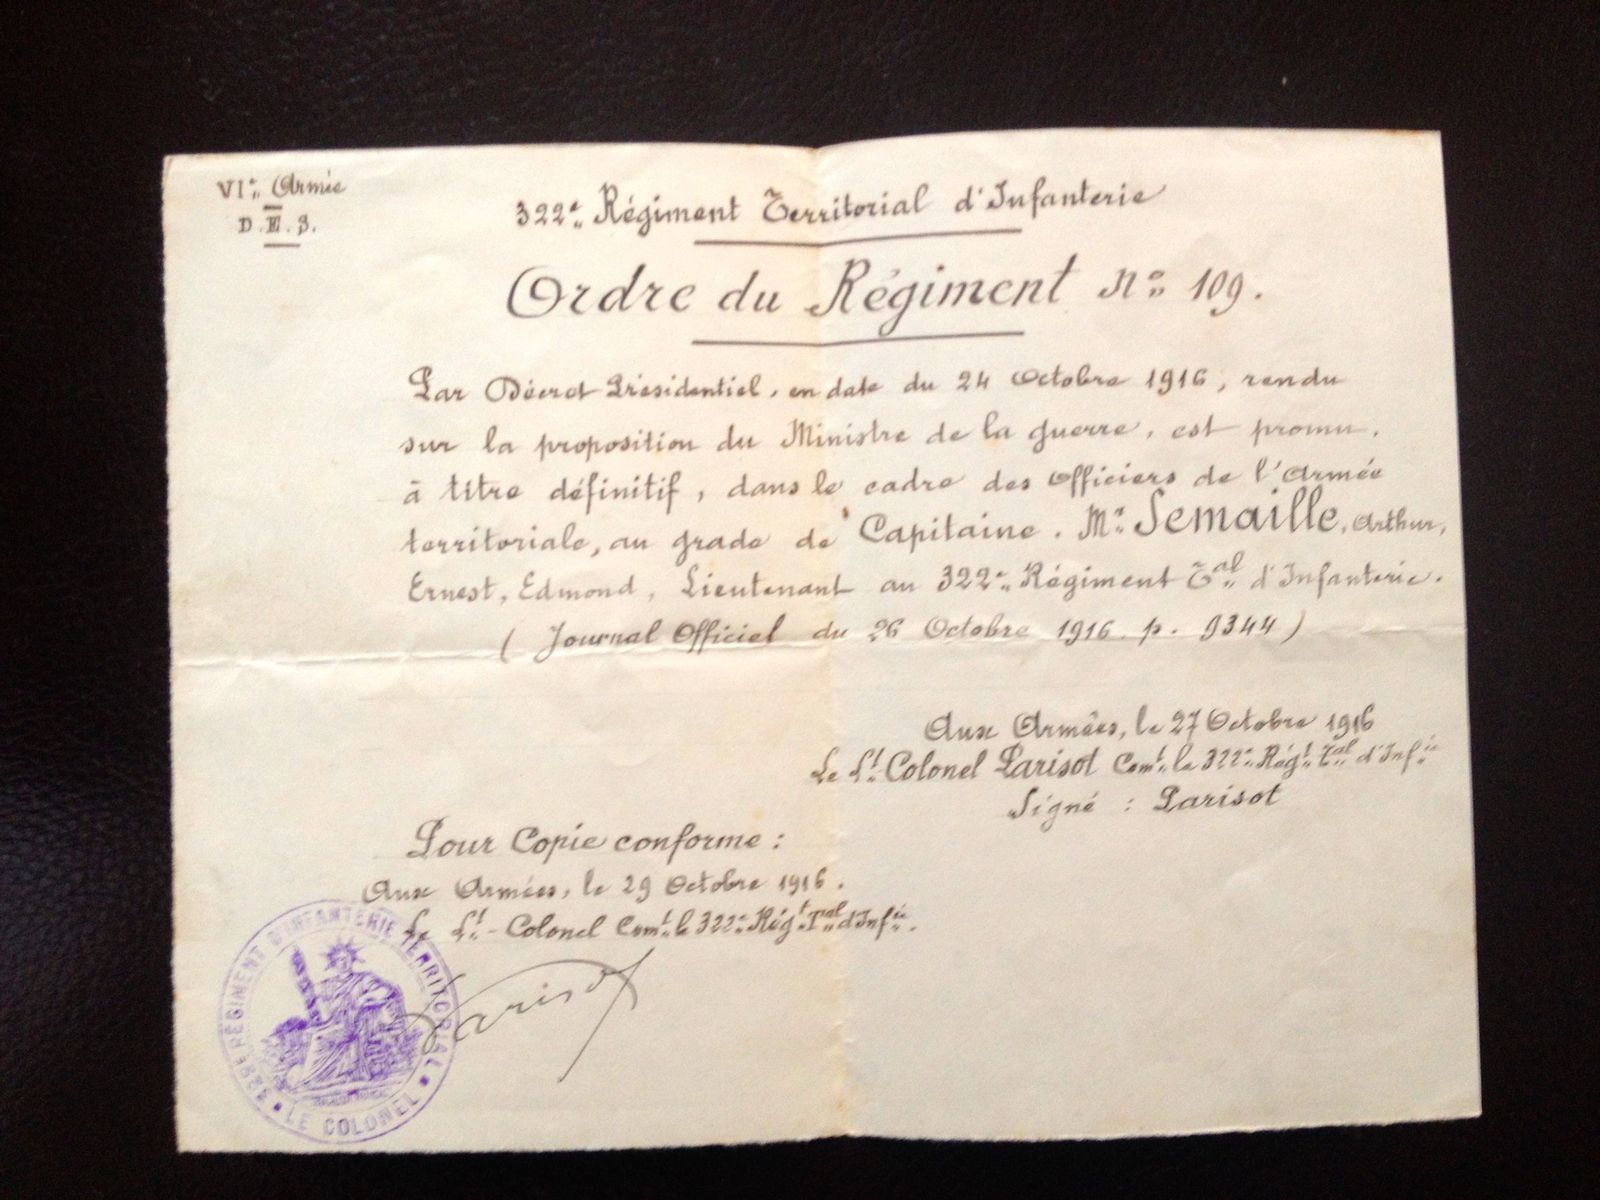 VIe Armée
D.E.S.
322e Régiment Territorial d'Infanterie
Ordre du Régiment No 109.
Par Décret Présidentiel, en date du 24 Octobre 1916, rendu
sur la proposition du Ministre de la guerre, est promu,
à titre définitif, dans le cadre des Officiers de l'Armée
territoriale, au grade de Capitaine. Mr Semaille, Arthur,
Ernest, Edmond, Lieutenant au 322e Régiment Tal d'Infanterie.
(Journal Officiel du 26 Octobre 1916. p. 9344)
Aux Armées, le 27 Octobre 1916
Le Lt Colonel Parisot Comt le 322e Régt Tal d'Infie
Signé : Parisot
Pour Copie conforme :
Aux Armées, le 29 Octobre 1916.
Le Lt-Colonel Comt le 322e Régt Tal d'Infie.
Parisot
322E RÉGIMENT D'INFANTERIE TERRITORIAL
LE COLONEL